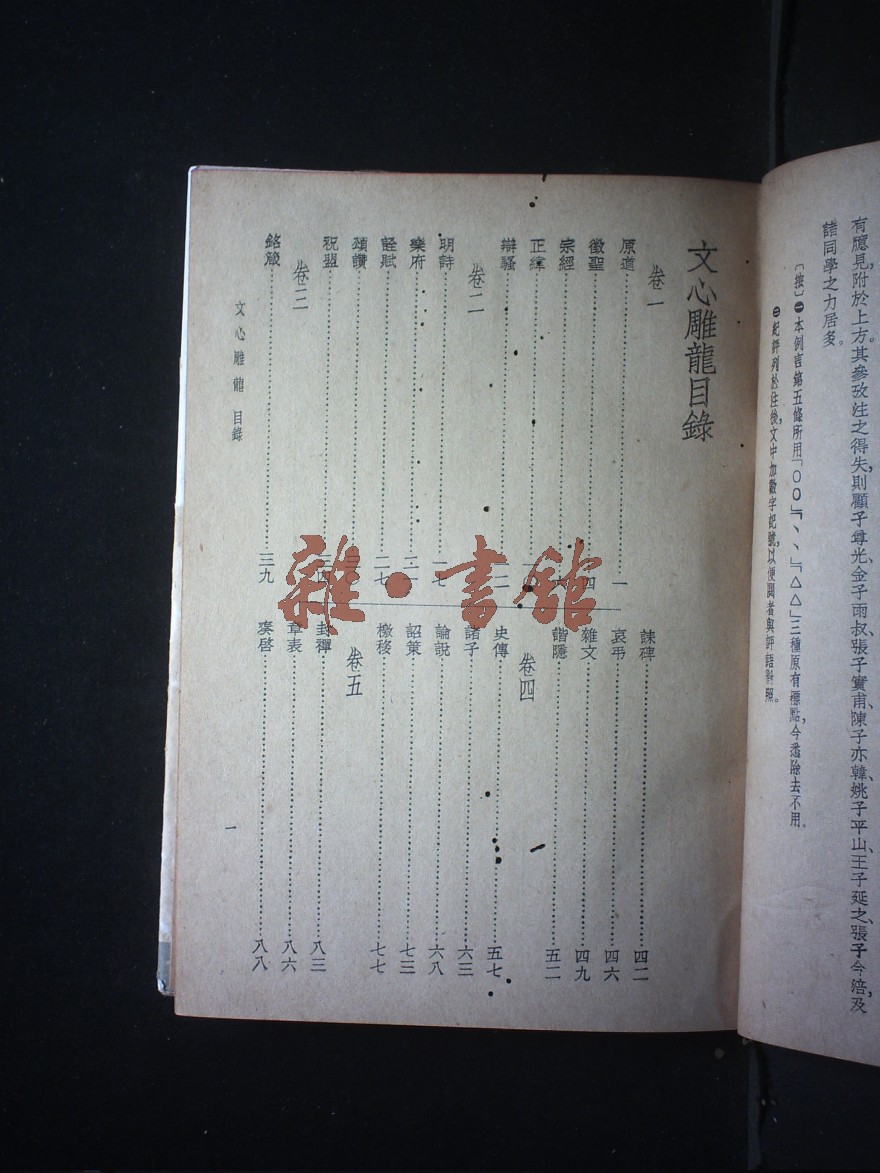 有臆見,附於上方。其參攷注之得失,則顧子尊光、金子雨叔、張子實甫、陳子亦韓、姚子平山、王子延之、張子今涪及
諸同學之力居多。
〔按〕㊀本例言第五條所用「○○」「、、」「△△」三種原有標點,今悉除去不用。
㊁紀評列於注後,文中加數字記號,以便閱者與評語對照。
文心雕龍目錄
卷一
原道 一
徵聖 四
宗經
正緯
辯騷 一二
卷二
明詩 一七
樂府 二一
詮賦 二七
頌讚
祝盟 三四
卷三
銘箴 三九
誄碑 四二
哀弔 四六
雜文 四九
諧隱 五二
卷四
史傳 五七
諸子 六三
論說 六八
詔策 七三
檄移 七七
卷五
封禪 八三
章表 八六
奏啓 八八
文心雕龍 目錄
一
雜·書館